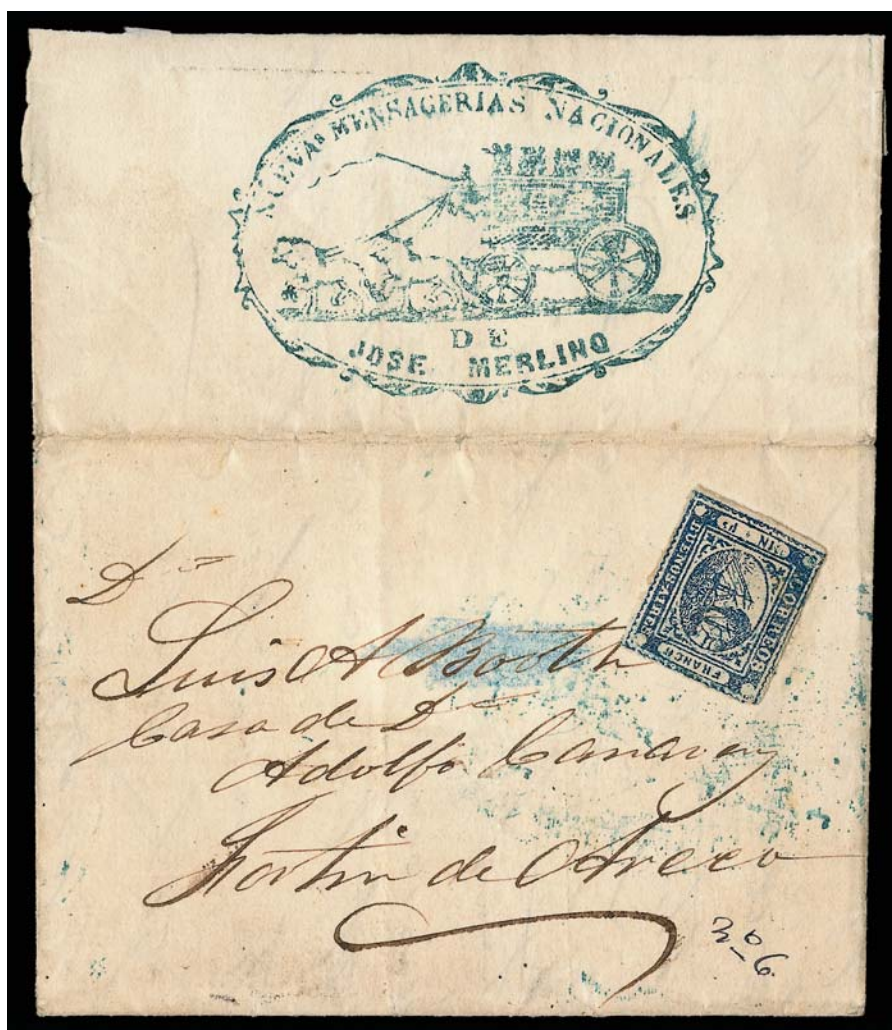 NUEVAS MENSAGERIAS NACIONALES
DE
JOSE MERLINO
CORREOS
BUENOS AIRE
FRANCO
Dn
Luis A Booth
Casa de Dn
Adolfo
Fortin de Areco